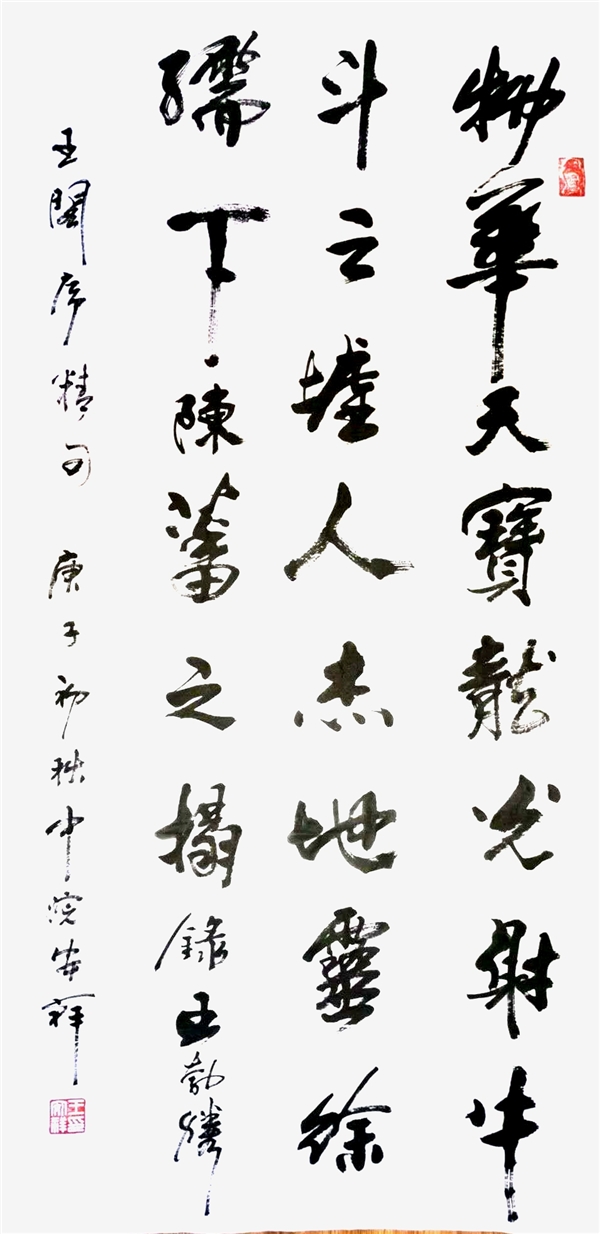 物華天寶龍光射牛
斗之墟人杰地靈徐
孺下陳蕃之榻錄王勃滕
王閣序精句 庚子初秋中浣安祥